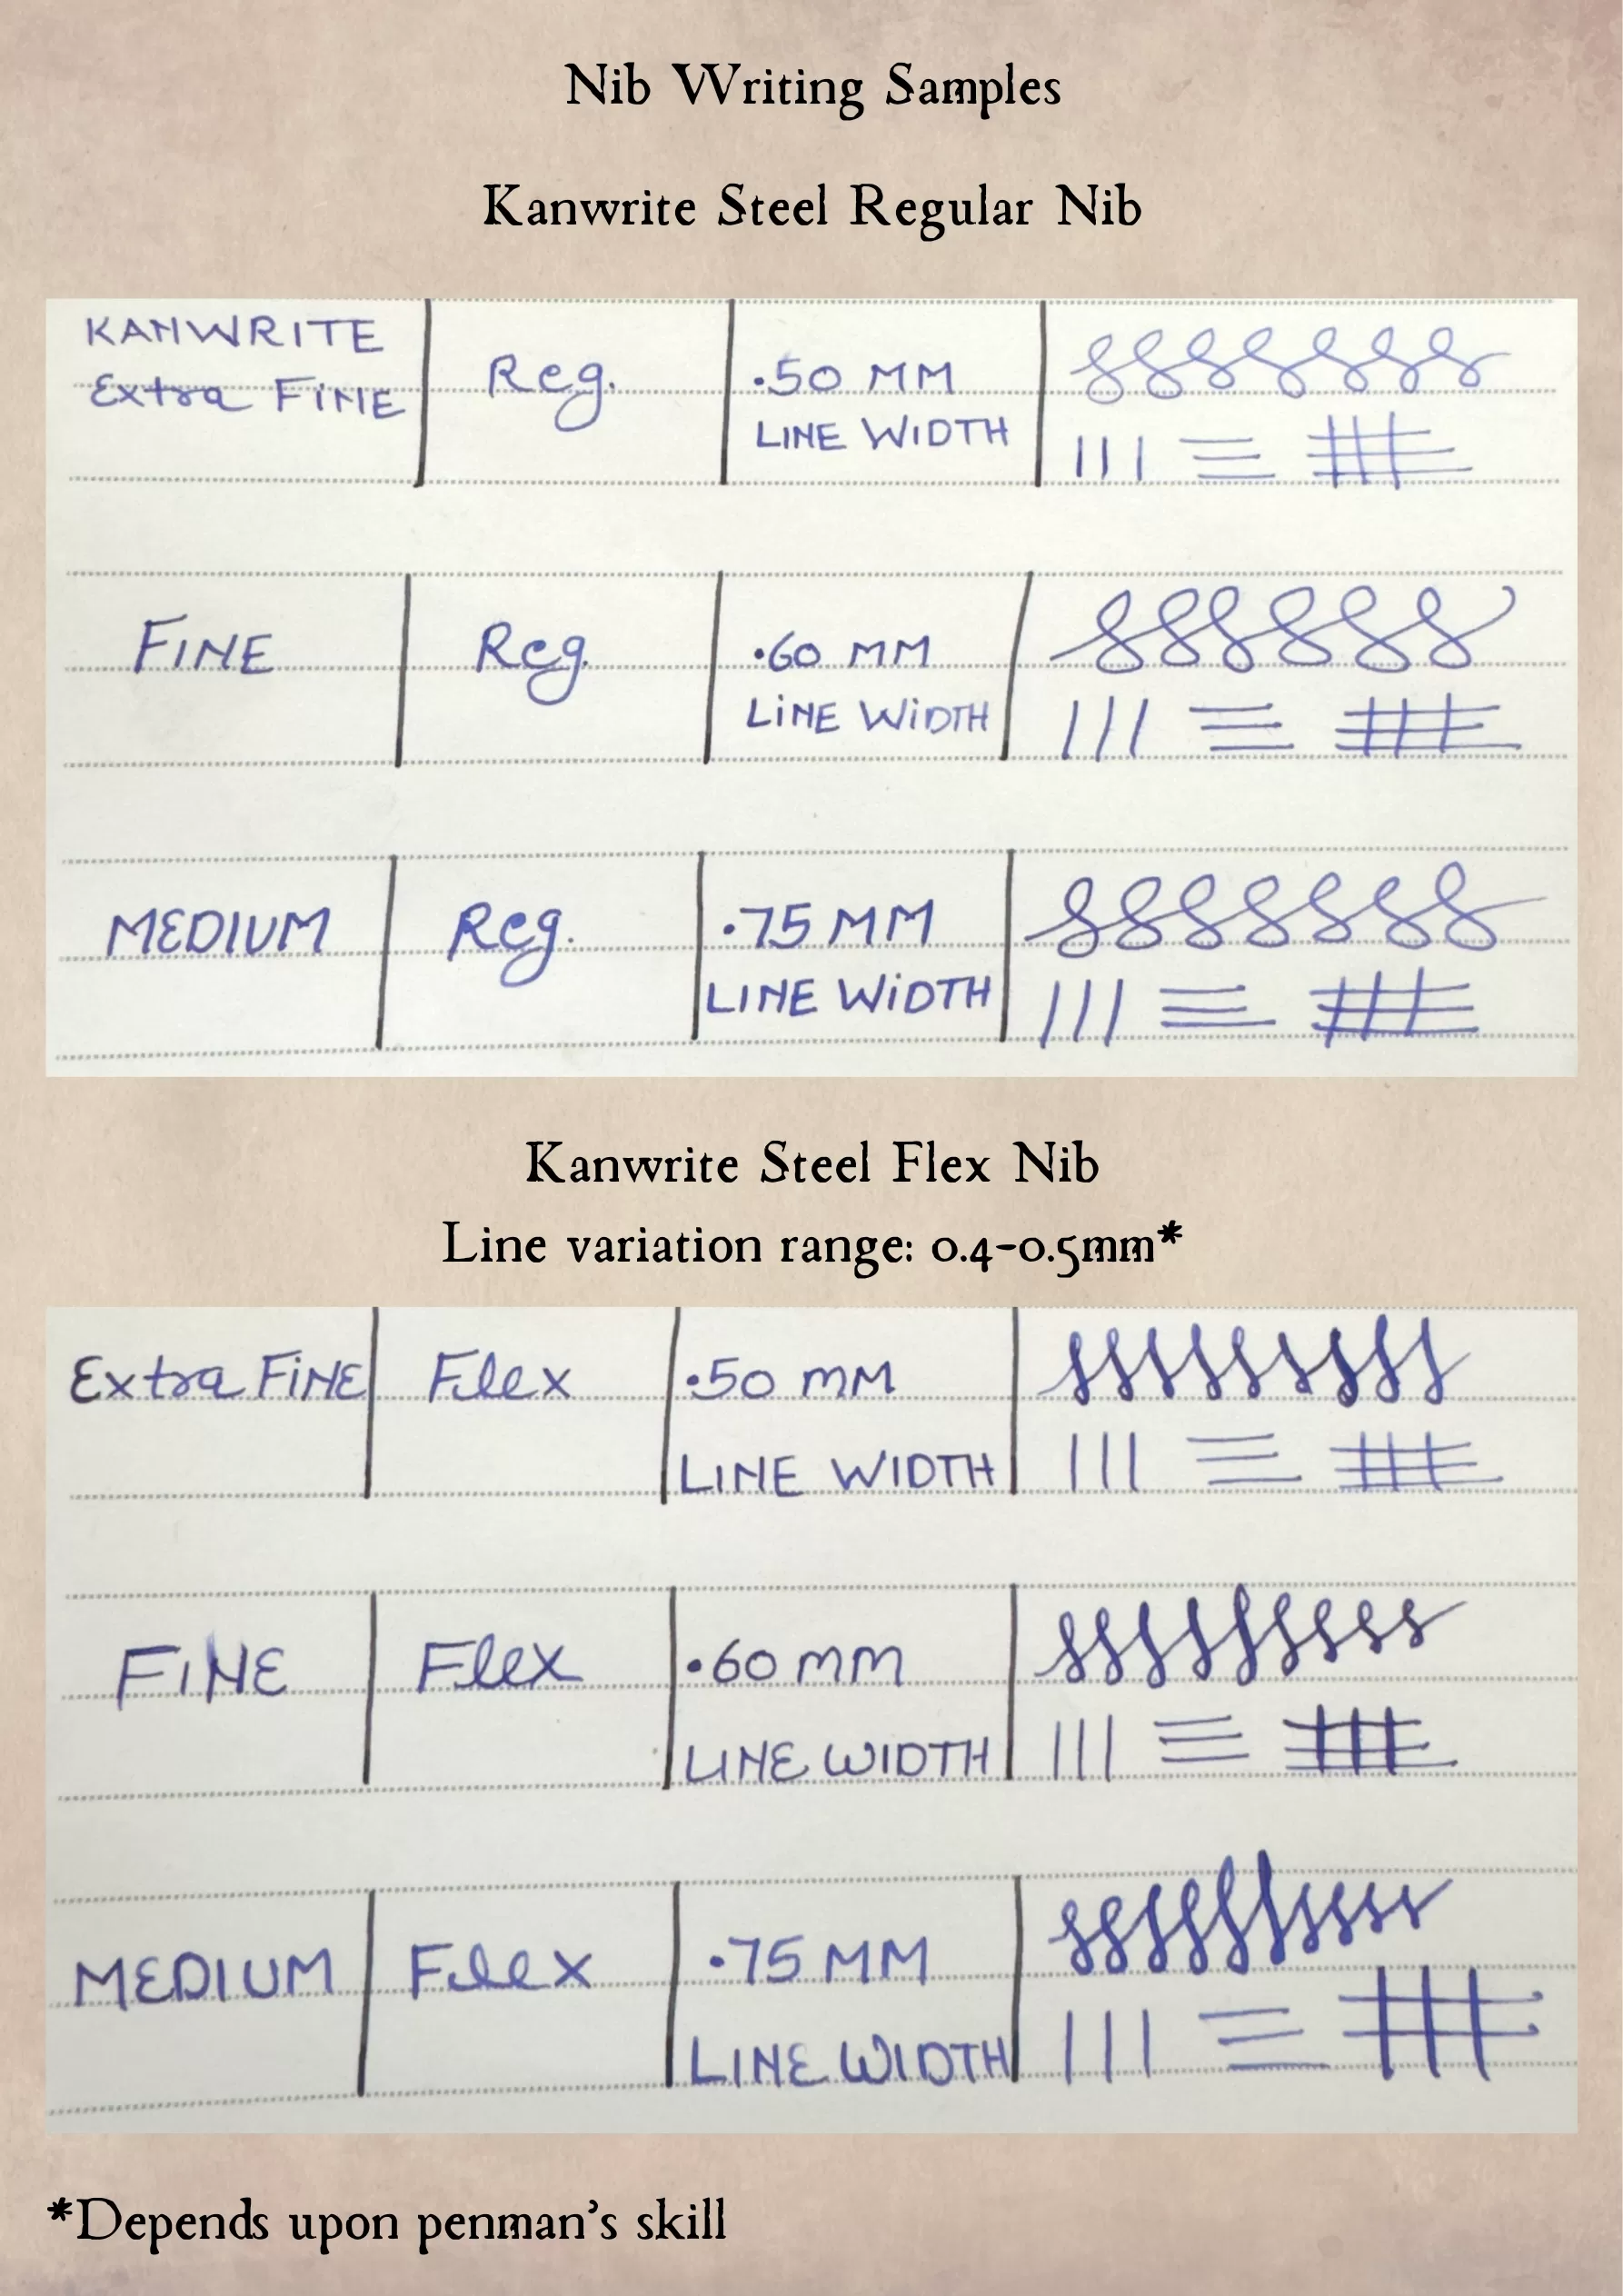 Nib Writing Samples
Kanwrite Steel Regular Nib
KANWRITE
Extra FiNE
Reg.
.50 MM
LINE WIDTH
FINE
Reg.
.60 MM
LiNE WiDTH
MEDIUM
Reg.
.75 MM
LINE WiDTH
Kanwrite Steel Flex Nib
Line variation range: 0.4-0.5mm*
Extra FiNE
Flex
.50 mM
LINE WIDTH
FiNE
Flex
.60 mm
LINE WIDTH
MEDIUM
Flex
.75 MM
LINE WIDTH
*Depends upon penman's skill